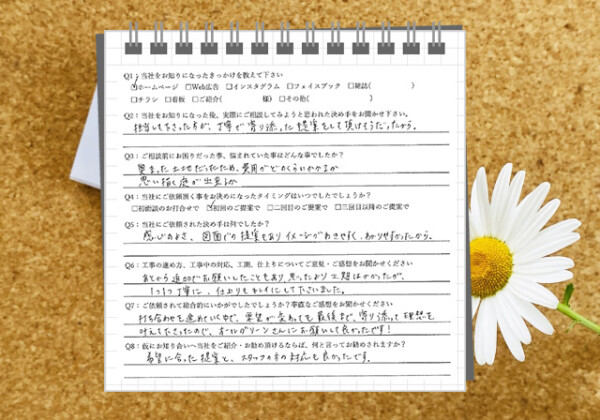 Q1：当社をお知りになったきっかけを教えて下さい
☑ホームページ □Web広告 □インスタグラム □フェイスブック □雑誌( )
□チラシ □看板 □ご紹介( 様) □その他( )
Q2：当社をお知りになった後、実際にご相談してみようと思われた決め手をお聞かせ下さい。
担当して下さった方が、丁寧で寄り添った提案をして頂けそうだったから。
Q3：ご相談前にお困りだった事、悩まれていた事はどんな事でしたか？
土地だったため、費用がどのくらいかかるか
思い描く庭が出来るか
Q4：当社にご依頼頂く事をお決めになったタイミングはいつでしたでしょうか？
□初面談のお打合せで ☑初回のご提案で □二回目のご提案で □三回目以降のご提案で
Q5：当社にご依頼された決め手は何でしたか？
感じのよさ、図面での提案もありイメージがわきやすく、わかりやすかったから。
Q6：工事の進め方、工事中の対応、工期、仕上りについてご意見・ご感想をお聞かせください
あとから追加でお願いしたこともあり、思ったより工期はかかったが、
1つ1つ丁寧に、仕上りもキレイにして下さいました。
Q7：ご依頼されて総合的にいかがでしたでしょうか？率直なご感想をお聞かせください
打ち合わせを進めていく中で、要望が変わっても最後まで、寄り添って理想を
叶えて下さったので、オールグリーンさんにお願いして良かったです！
Q8：仮にお知り合いへ当社をご紹介・お勧め頂けるならば、何と言ってお勧めされますか？
希望に合った提案と、スタッフの方の対応も良かったです。